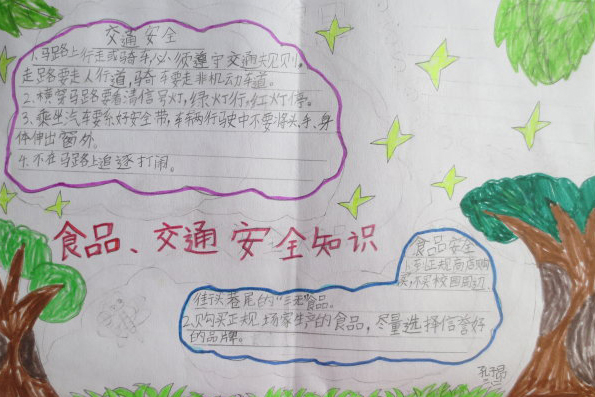 交通安全
1.马路上行走或骑车必须遵守交通规则。
走路要走人行道,骑车要走非机动车道。
2.横穿马路要看清信号灯,绿灯行,红灯停。
3.乘坐汽车要系好安全带,车辆行驶中不要将头、手、身
体伸出窗外。
4.不在马路上追逐打闹。
食品、交通安全知识
食品安全
1.到正规商店购
买,不买校园周边
街头巷尾的“三无”食品。
2.购买正规场家生产的食品,尽量选择信誉好
的品牌。